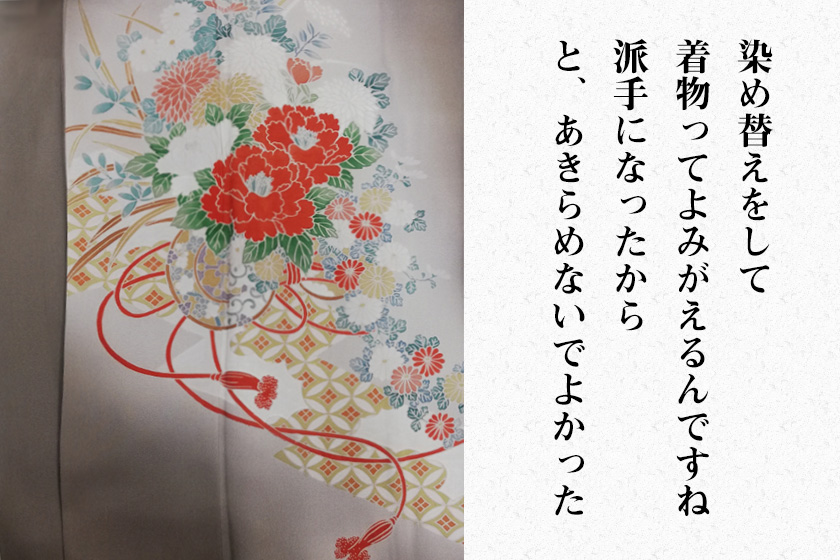 染め替えをして
着物ってよみがえるんですね
派手になったから
と、あきらめないでよかった